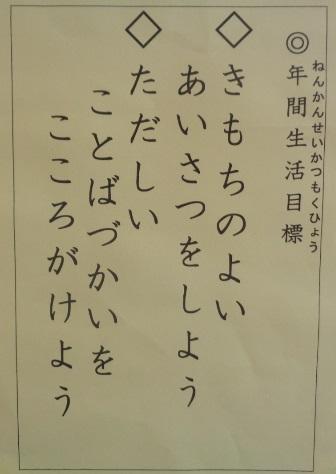 ◎年間生活目標
ねんかんせいかつもくひょう
◇きもちのよい
あいさつをしよう
◇ただしい
ことばづかいを
こころがけよう